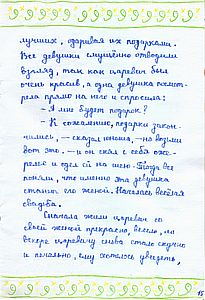 лучших, одаривая их подарками.
Все девушки смущённо отводили
взгляд, так как царевич был
очень красив, а одна девушка посмот-
рела прямо на него и спросила:
- Я мне будет подарок?
- К сожалению, подарки закон-
чились, - сказал юноша, - но возьми
вот это. - и он снял с себя оже-
релье и одел ей на шею. Тогда все
поняли, что именно эта девушка
станет его женой. Началась весёлая
свадьба.
Сначала жили царевич со
своей женой прекрасно, весело, но
вскоре царевичу снова стало скучно
и печально, ему хотелось увидеть,
15